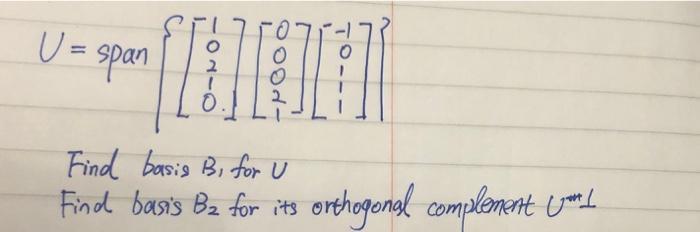 U = span { [1 0 2 1 0] [0 0 0 2 1] [-1 0 1 1 1] }
Find basis B₁ for U
Find basis B₂ for its orthogonal complement U⊥